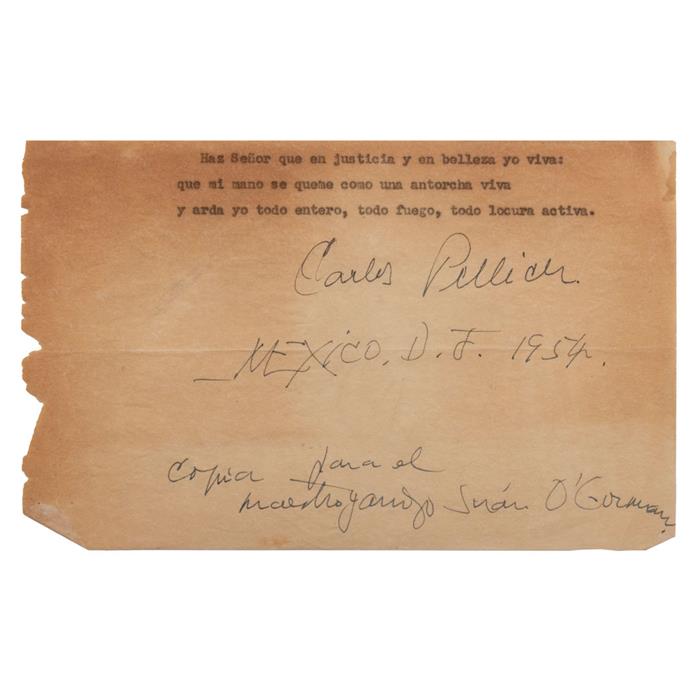 Haz Señor que en justicia y en belleza yo viva:
que mi mano se queme como una antorcha viva
y arda yo todo entero, todo fuego, todo locura activa.
Carlos Pellicer.
_MEXICO. D. F. 1954.
copia para el
maestro y amigo Juan O'Gorman.